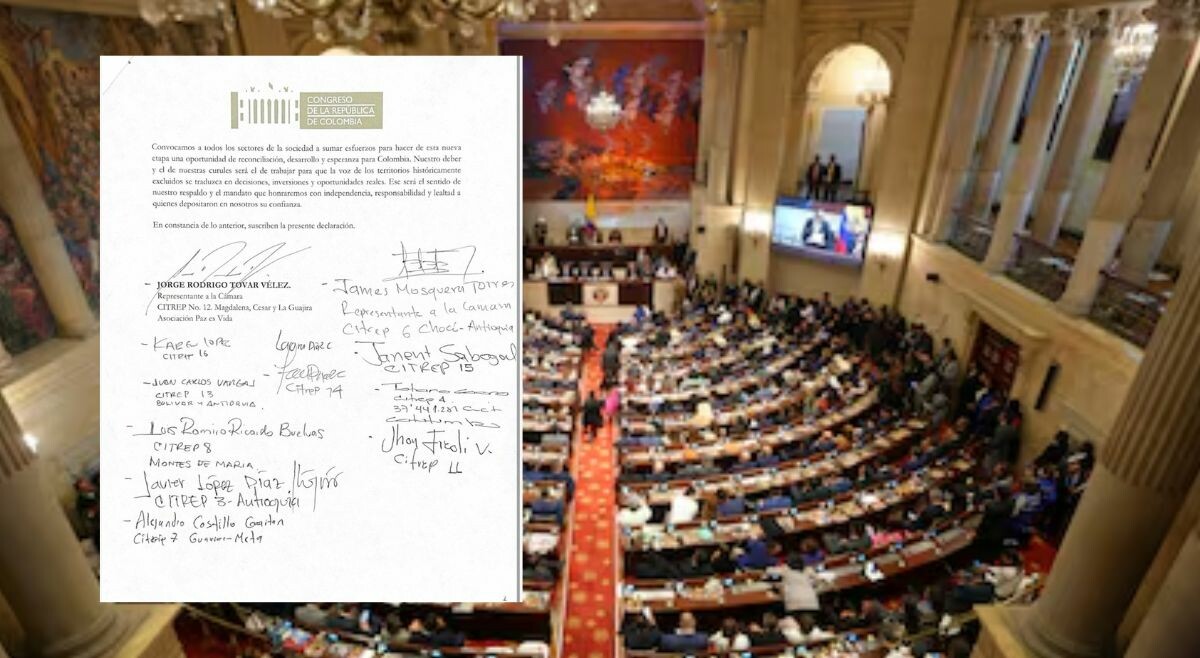 CONGRESO
DE LA REPÚBLICA
DE COLOMBIA
Convocamos a todos los sectores de la sociedad a sumar esfuerzos para hacer de esta nueva
etapa una oportunidad de reconciliación, desarrollo y esperanza para Colombia. Nuestro deber
y el de nuestras curules será el de trabajar para que la voz de los territorios históricamente
excluidos se traduzca en decisiones, inversiones y oportunidades reales. Ese será el sentido de
nuestro respaldo y el mandato que honraremos con independencia, responsabilidad y lealtad a
quienes depositaron en nosotros su confianza.
En constancia de lo anterior, suscriben la presente declaración.
- JORGE RODRIGO TOVAR VÉLEZ.
Representante a la Cámara
CITREP No. 12. Magdalena, Cesar y La Guajira
Asociación Paz es Vida
- KAREN LOPEZ
CITREP 16
- JUAN CARLOS VARGAS
CITREP 13
BOLIVAR Y ANTIOQUIA.
- Luis Ramiro Ricardo Buelvas
CITREP 8
MONTES DE MARIA
- Javier López Díaz
CITREP 3-Antioquia
- Alejandro Castillo
Citrep 7 Guaviare-Meta
- James Mosquera Torres
Representante a la Camara
Citrep 6 Chocó-Antioquia
CITREP 14
- Janent Sabogal
CITREP 15
citrep 4
- Jhoy V.
Citrep 11